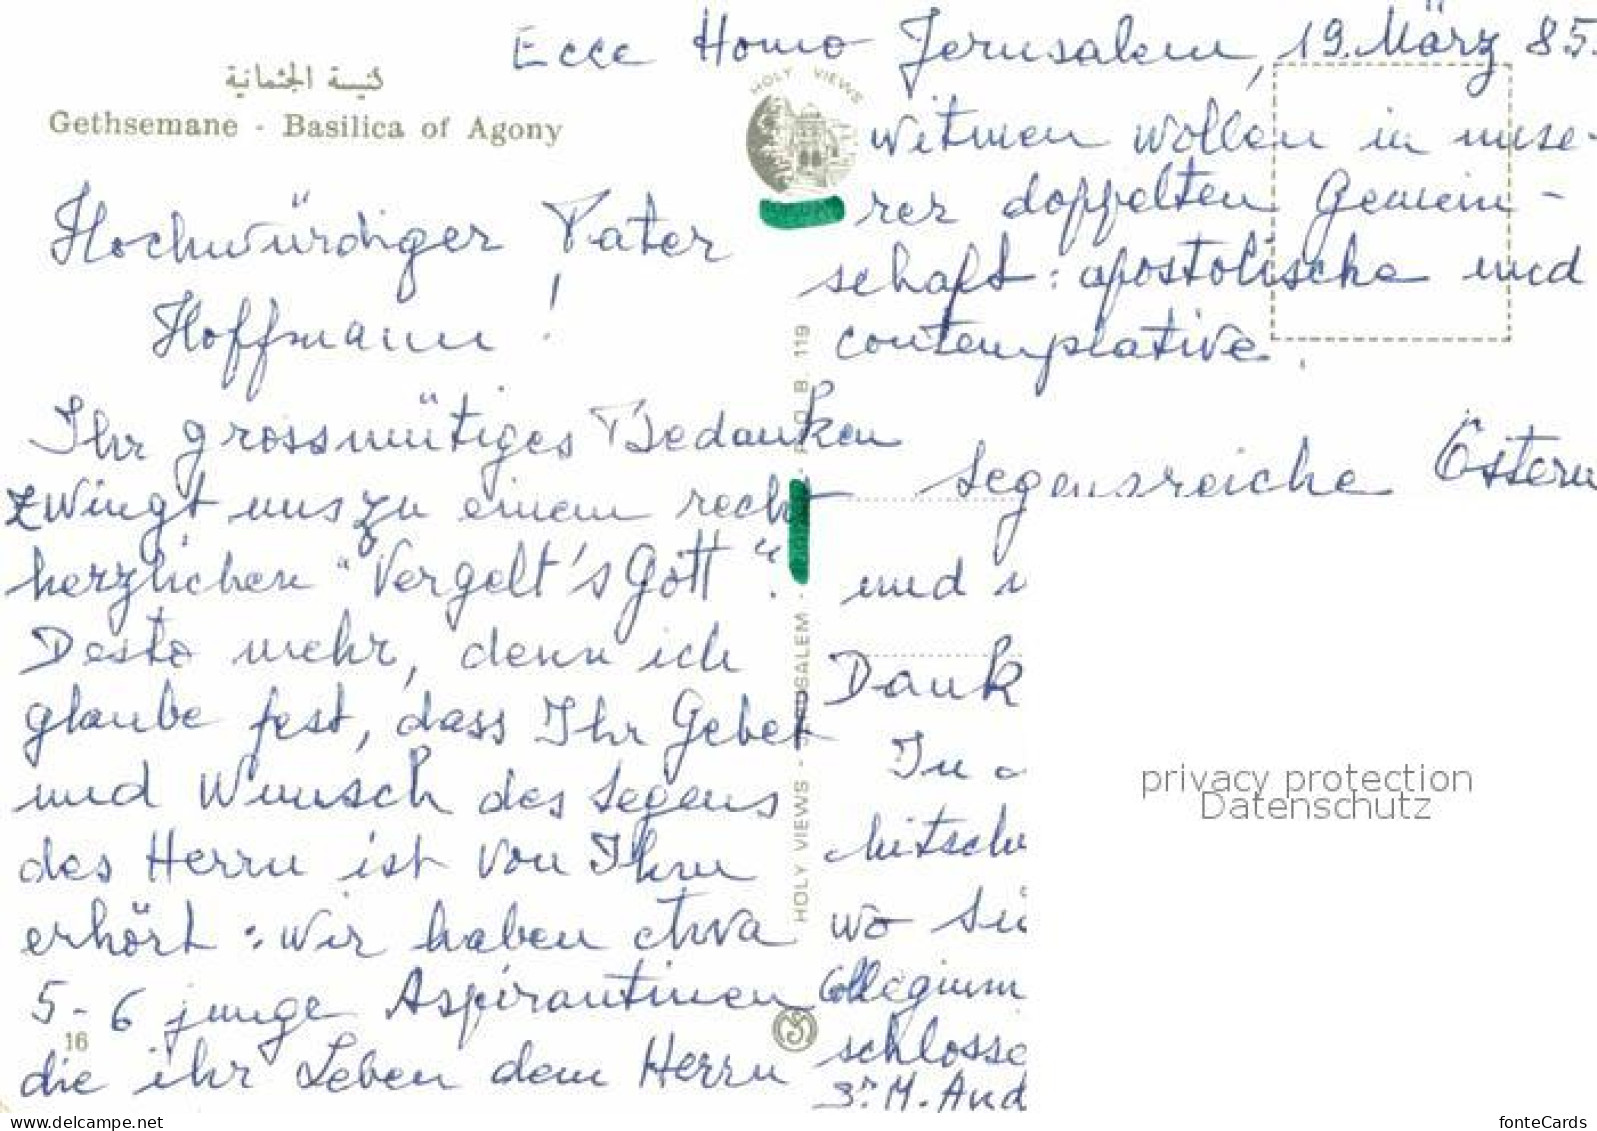 Ecce Homo Jerusalem, 19. März 85.
كنيسة الجثمانية
Gethsemane - Basilica of Agony
HOLY VIEWS
Hochwürdiger Pater
Hoffmann !
Ihr grossmütiges Bedanken
zwingt uns zu einem recht
herzlichen "Vergelt's Gott".
Desto mehr, denn ich
glaube fest, dass Ihr Gebet
und Wunsch des Segens
des Herrn ist von Ihm
erhört: wir haben etwa
5-6 junge Aspirantinen
16
die ihr Leben dem Herrn
HOLY VIEWS - JERUSALEM - P.O.B. 119
witmen wollen in unse-
rer doppelten Gemein-
schaft: apostolische und
contemplative.
Segensreiche Ostern
und
Dank
In
wo
Collegium
schlosse
Sr. M. And
privacy protection
Datenschutz
www.delcampe.net
fonteCards